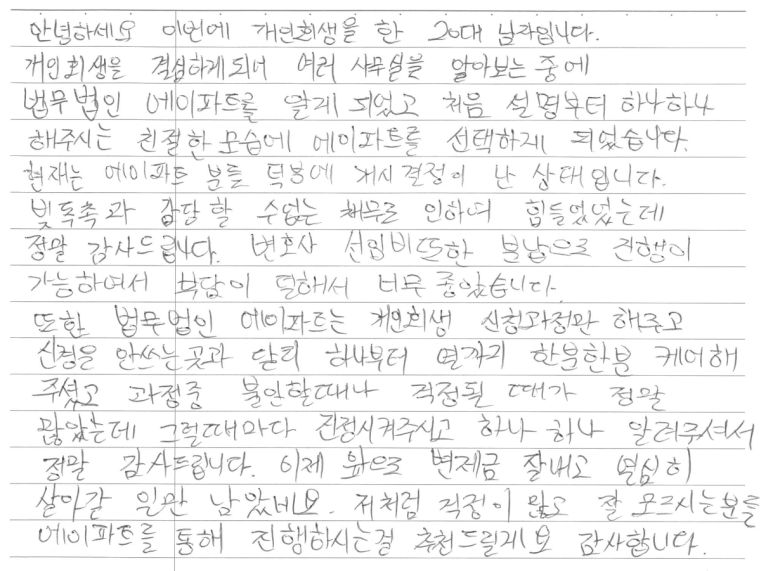 안녕하세요 이번에 개인회생을 한 20대 남자입니다.
개인회생을 결심하게되어 여러 사무실을 알아보는 중에
법무법인 에이파트를 알게 되었고 처음 설명부터 하나하나
해주시는 친절한 모습에 에이파트를 선택하게 되었습니다.
현재는 에이파트 분들 덕분에 개시결정이 난 상태입니다.
빚독촉과 감당할 수없는 채무로 인하여 힘들었었는데
정말 감사드립니다. 변호사 선임비또한 분납으로 진행이
가능하여서 부담이 덜해서 너무 좋았습니다.
또한 법무법인 에이파트는 개인회생 신청과정만 해주고
신경을 안쓰는곳과 달리 하나부터 열까지 한분한분 케어해
주셨고 과정중 불안할때나 걱정될 때가 정말
많았는데 그럴때마다 진정시켜주시고 하나 하나 알려주셔서
정말 감사드립니다. 이제 앞으로 변제금 잘내고 열심히
살아갈 일만 남았네요. 저처럼 걱정이 많고 잘 모르시는분들
에이파트를 통해 진행하시는걸 추천드릴게요 감사합니다.